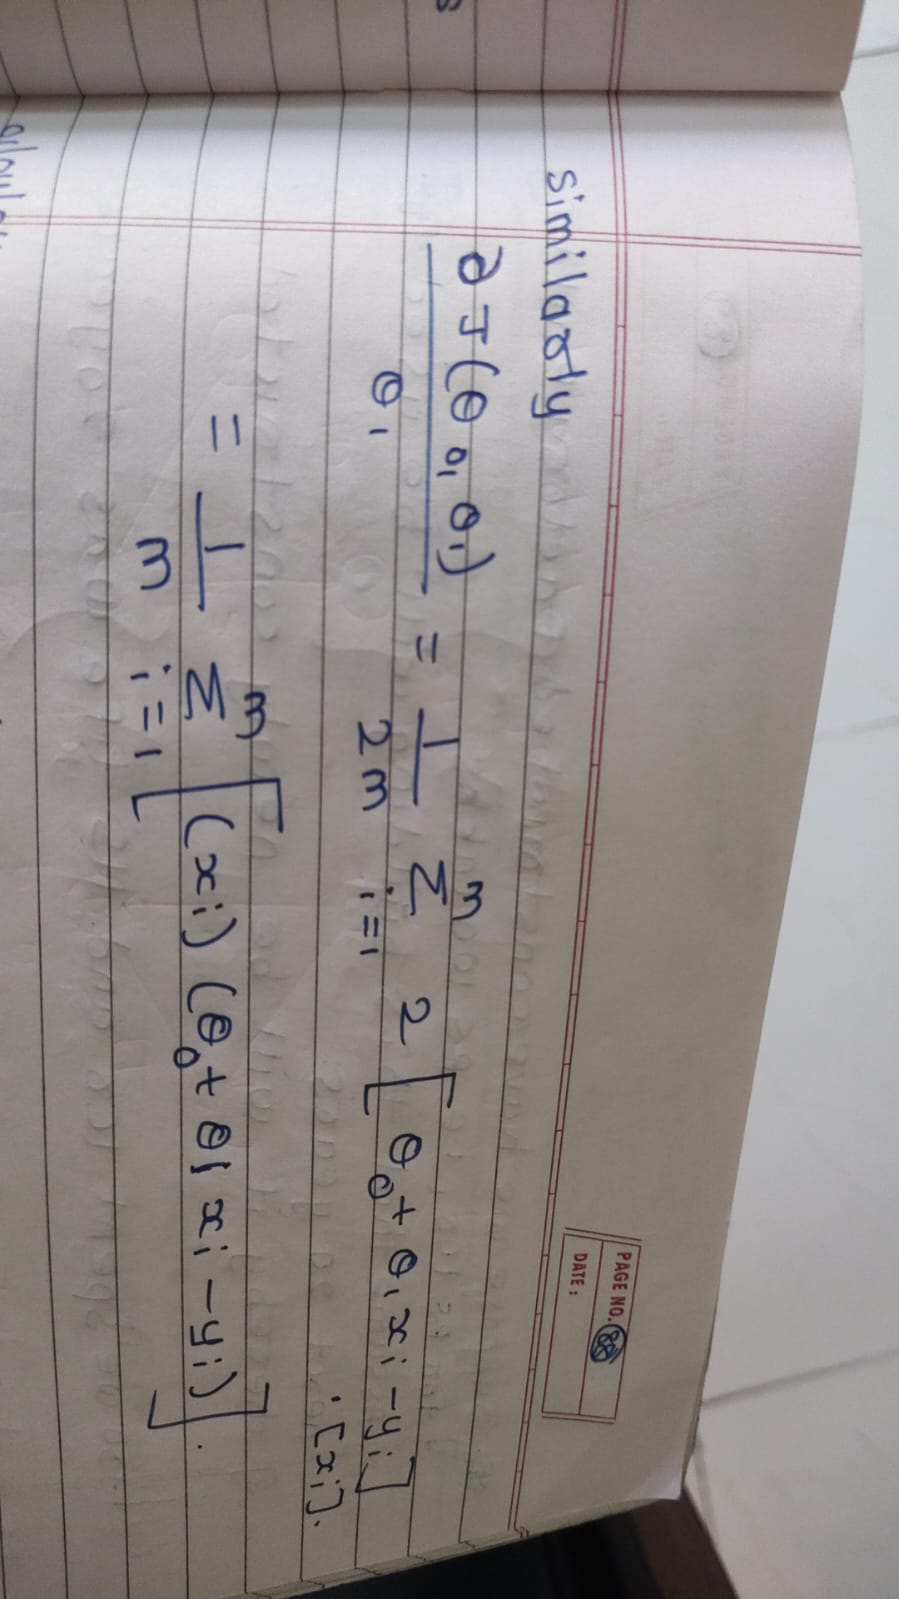 PAGE NO. 88
DATE :
similarly
∂ J(θ0, θ1) / θ1 = 1/2m Σ i=1 m 2 [θ0 + θ1 xi - yi]
· [xi].
= 1/m Σ i=1 m [(xi) (θ0 + θ1 xi - yi)].